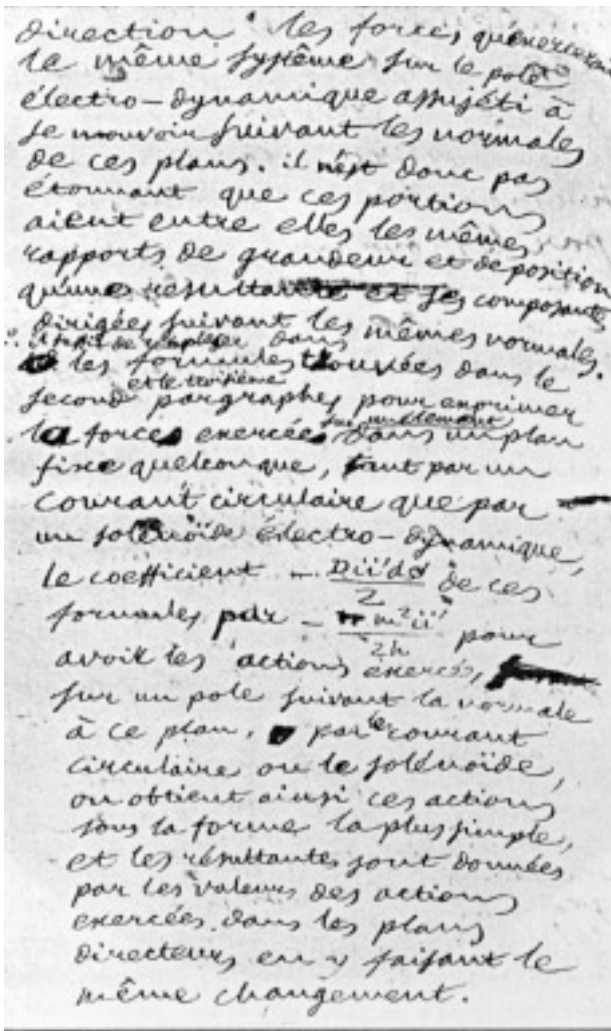 direction les forces qu'exercerait
le même système sur le pole
électro-dynamique assujéti à
se mouvoir suivant les normales
de ces plans. il n'est donc pas
étonnant que ces portions
aient entre elles les mêmes
rapports de grandeur et de position
qu'une resultante et ses composantes
dirigées suivant les mêmes normales.
il suffit de remplacer dans
les formules trouvées dans le
et le troisième
second paragraphes pour exprimer
sur un élément
la forces exercées dans un plan
fixe quelconque, tant par un
courant circulaire que par
un solénoïde électro-dynamique,
le coefficient - Dii'ds'/2 de ces
formules par - m²ii'/2h pour
avoir les actions exercées,
sur un pole suivant la normale
à ce plan, par le courant
circulaire ou le solénoïde,
on obtient ainsi ces actions
sous la forme la plus simple,
et les résultantes sont données
par les valeurs des actions
exercées dans les plans
directeurs en y faisant le
même changement.